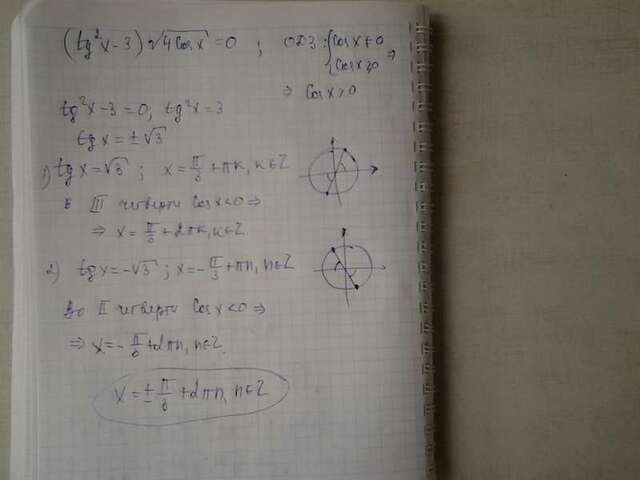 (tg²x-3)√4Cosx = 0 ; ОДЗ: {Cosx≠0
Cosx≥0 ⇒
⇒ Cosx>0
tg²x-3=0, tg²x=3
tgx=±√3
1) tgx=√3 ; x=π/3+πk, k∈Z
в III четверти Cosx<0 ⇒
⇒ x=π/3+2πk, k∈Z
2) tgx=-√3 ; x=-π/3+πn, n∈Z
Во II четверти Cosx<0 ⇒
⇒ x=-π/3+2πn, n∈Z.
x=±π/3+2πn, n∈Z